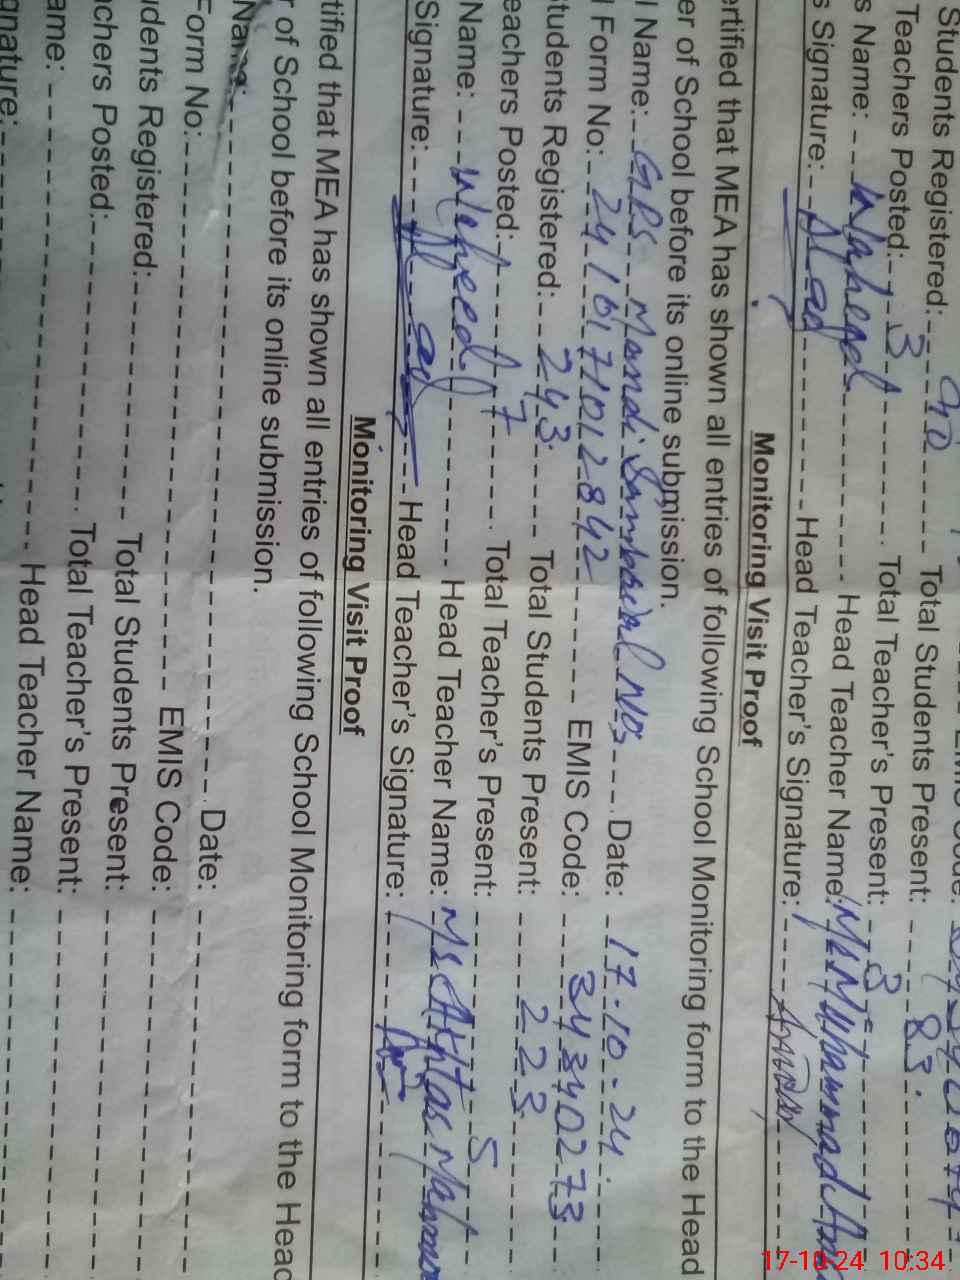 Students Registered: 90 Total Students Present: 83.
Teachers Posted: 3 Total Teacher's Present: 3
s Name: Waheed Head Teacher Name: Mr Muhammad
s Signature: Head Teacher's Signature:
Monitoring Visit Proof
ertified that MEA has shown all entries of following School Monitoring form to the Head
er of School before its online submission.
l Name: GPS Mandi Sambrial No3 Date: 17.10-24.
l Form No: 2410171012842 EMIS Code: 34340273
tudents Registered: 243 Total Students Present: 223
eachers Posted: 7 Total Teacher's Present: 5
Name: Waheed Head Teacher Name: Ms
Signature: Head Teacher's Signature:
Monitoring Visit Proof
tified that MEA has shown all entries of following School Monitoring form to the Head
r of School before its online submission.
Name: Date:
Form No: EMIS Code:
udents Registered: Total Students Present:
achers Posted: Total Teacher's Present:
ame: Head Teacher Name:
gnature:
17-10-24 10:34